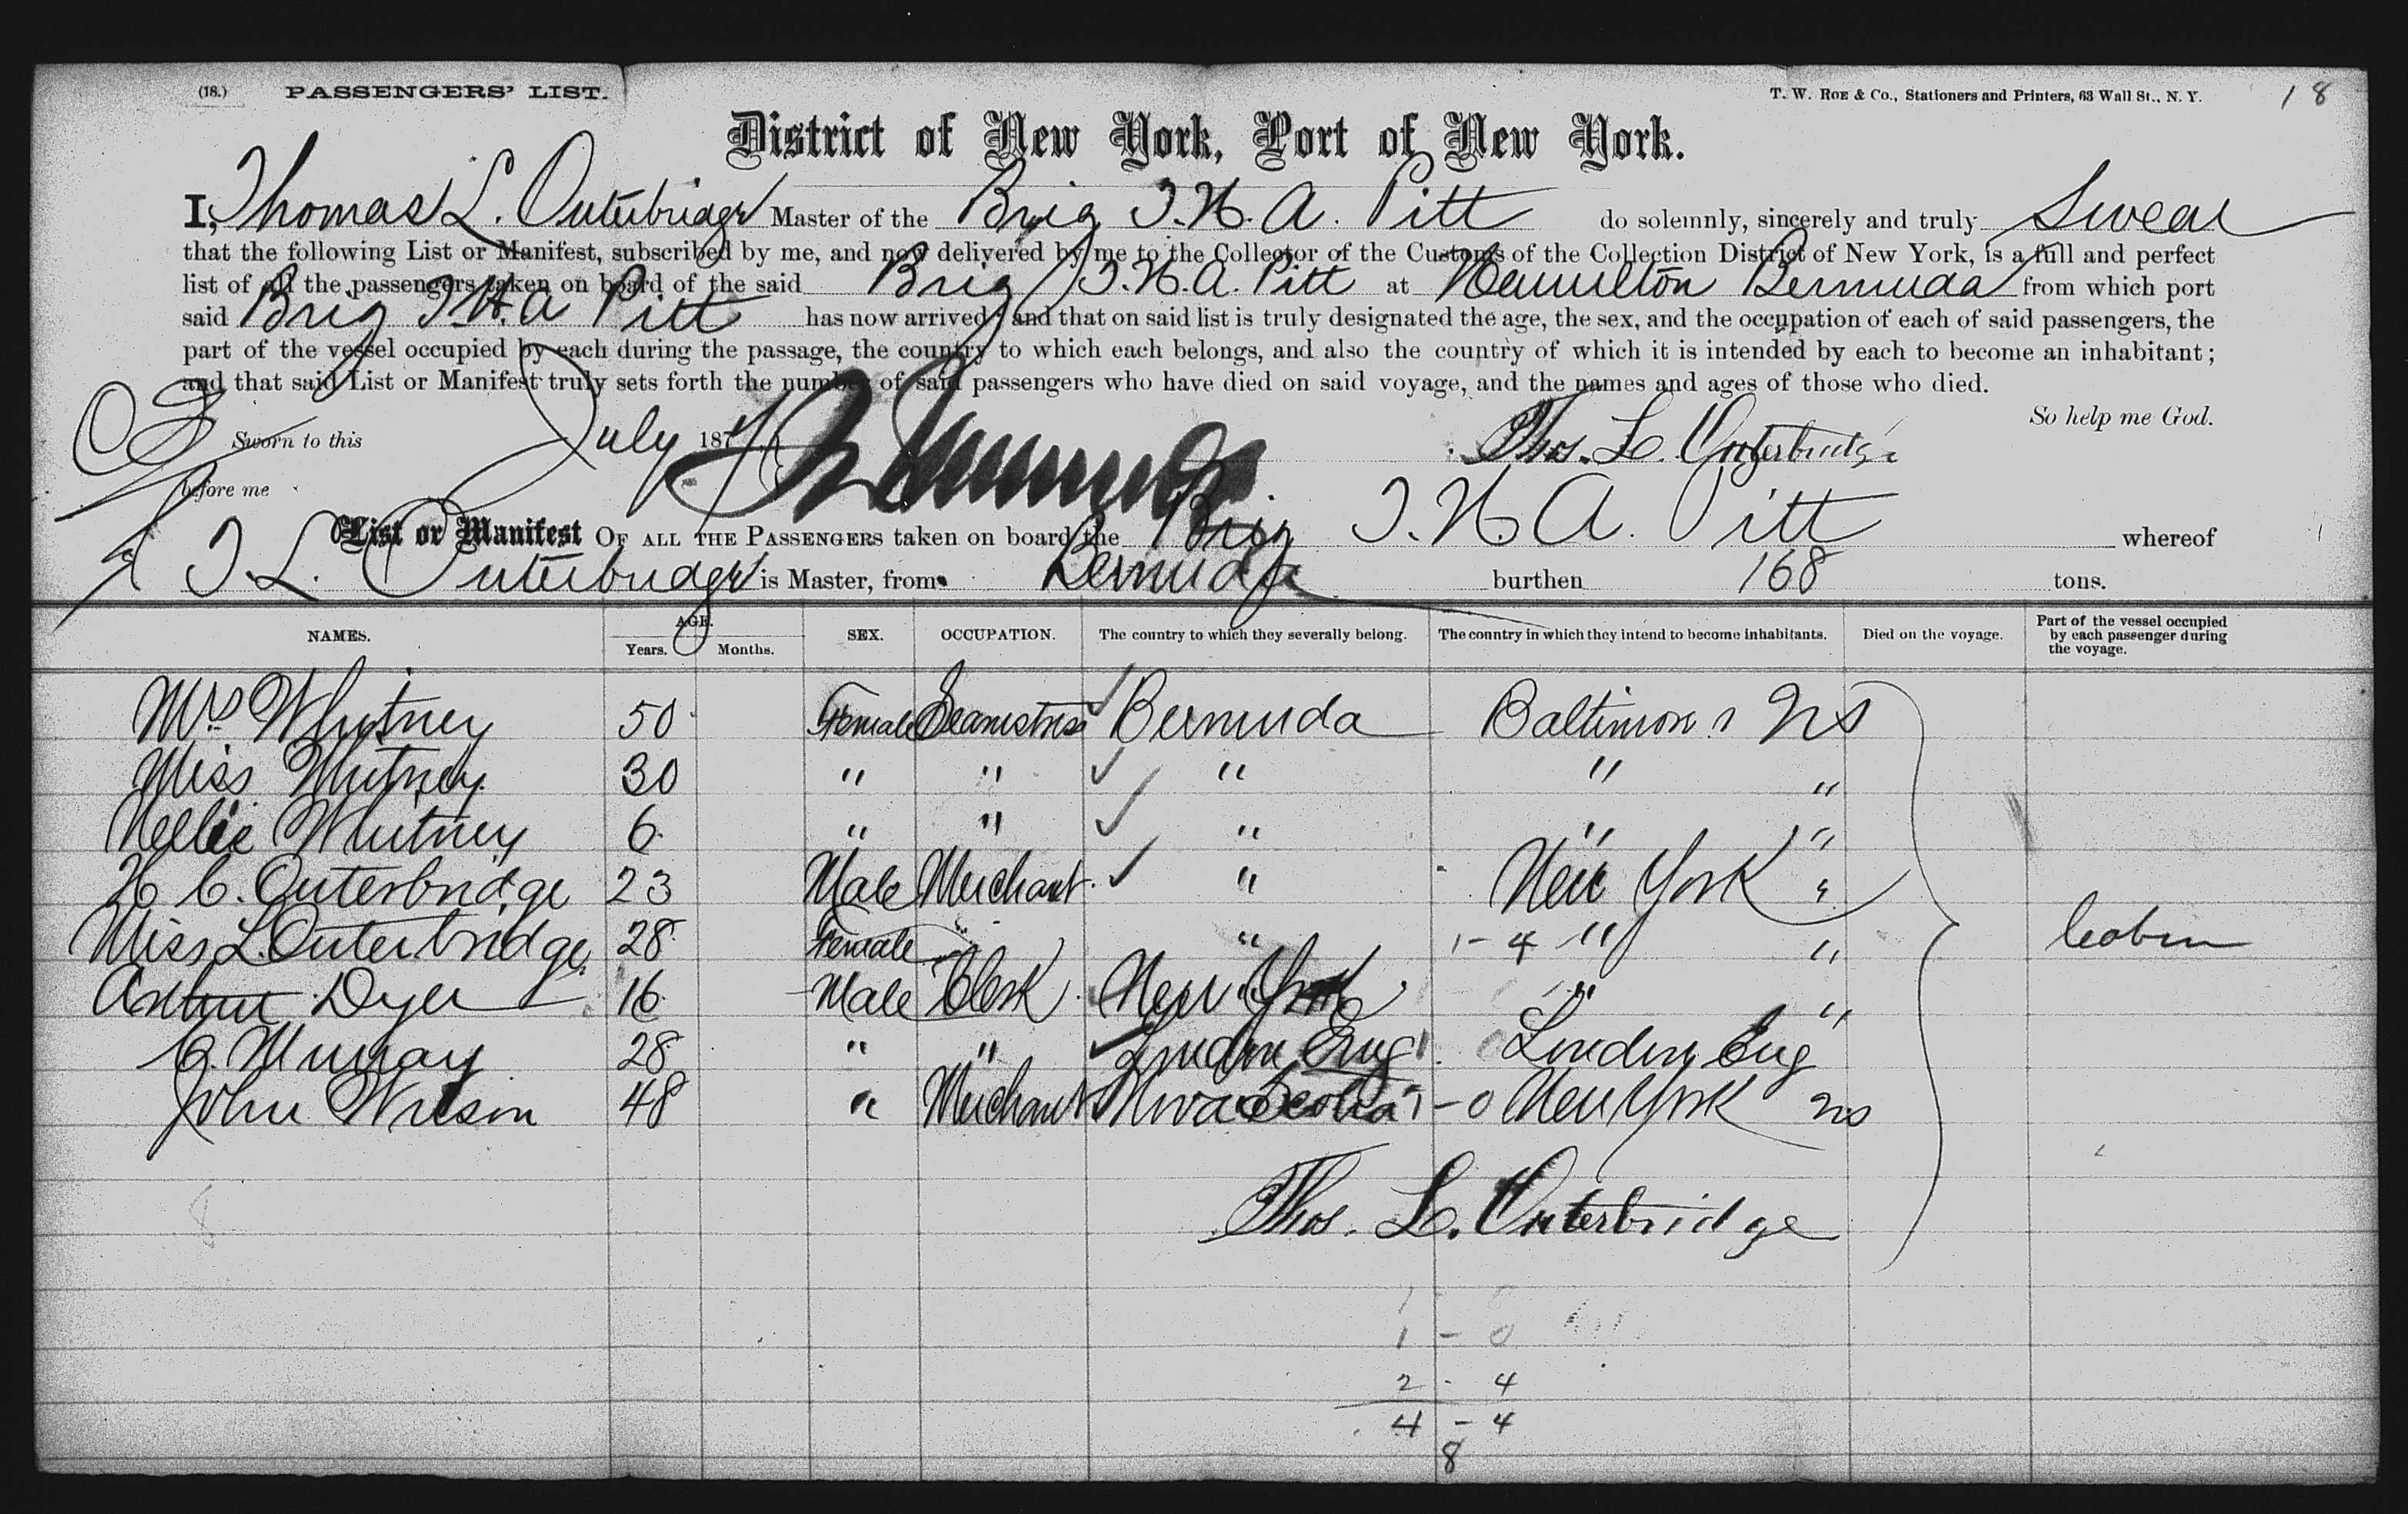 (18.) PASSENGERS' LIST. T. W. ROE & Co., Stationers and Printers, 63 Wall St., N. Y. 18
District of New York, Port of New York.
I, Thomas L. Outerbridge Master of the Brig T. H. A. Pitt do solemnly, sincerely and truly Swear
that the following List or Manifest, subscribed by me, and now delivered by me to the Collector of the Customs of the Collection District of New York, is a full and perfect
list of all the passengers taken on board of the said Brig T. H. A. Pitt at Hamilton Bermuda from which port
said Brig T. H. A Pitt has now arrived; and that on said list is truly designated the age, the sex, and the occupation of each of said passengers, the
part of the vessel occupied by each during the passage, the country to which each belongs, and also the country of which it is intended by each to become an inhabitant;
and that said List or Manifest truly sets forth the number of said passengers who have died on said voyage, and the names and ages of those who died.
So help me God.
Sworn to this July 187 Thos. L. Outerbridge
before me
List or Manifest OF ALL THE PASSENGERS taken on board the Brig T. H. A. Pitt whereof
T. L. Outerbridge is Master, from Bermuda burthen 168 tons.
NAMES. AGE. Years. Months. SEX. OCCUPATION. The country to which they severally belong. The country in which they intend to become inhabitants. Died on the voyage. Part of the vessel occupied by each passenger during the voyage.
Mrs Whitney 50 Female Seamstress Bermuda Baltimore US
Miss Whitney 30 " " " " "
Nellie Whitney 6 " " " " "
H C. Outerbridge 23 Male Merchant " New York "
Miss L. Outerbridge 28 Female " " 1-4 " " Cabin
Arthur Dyer 16 Male Clerk New York " "
C. Murray 28 " " London Eng London Eng
John Wilson 48 " Merchant Nova Scotia 1-0 New York US
Thos. L. Outerbridge
8
1 - 0
2 - 4
4 - 4
8